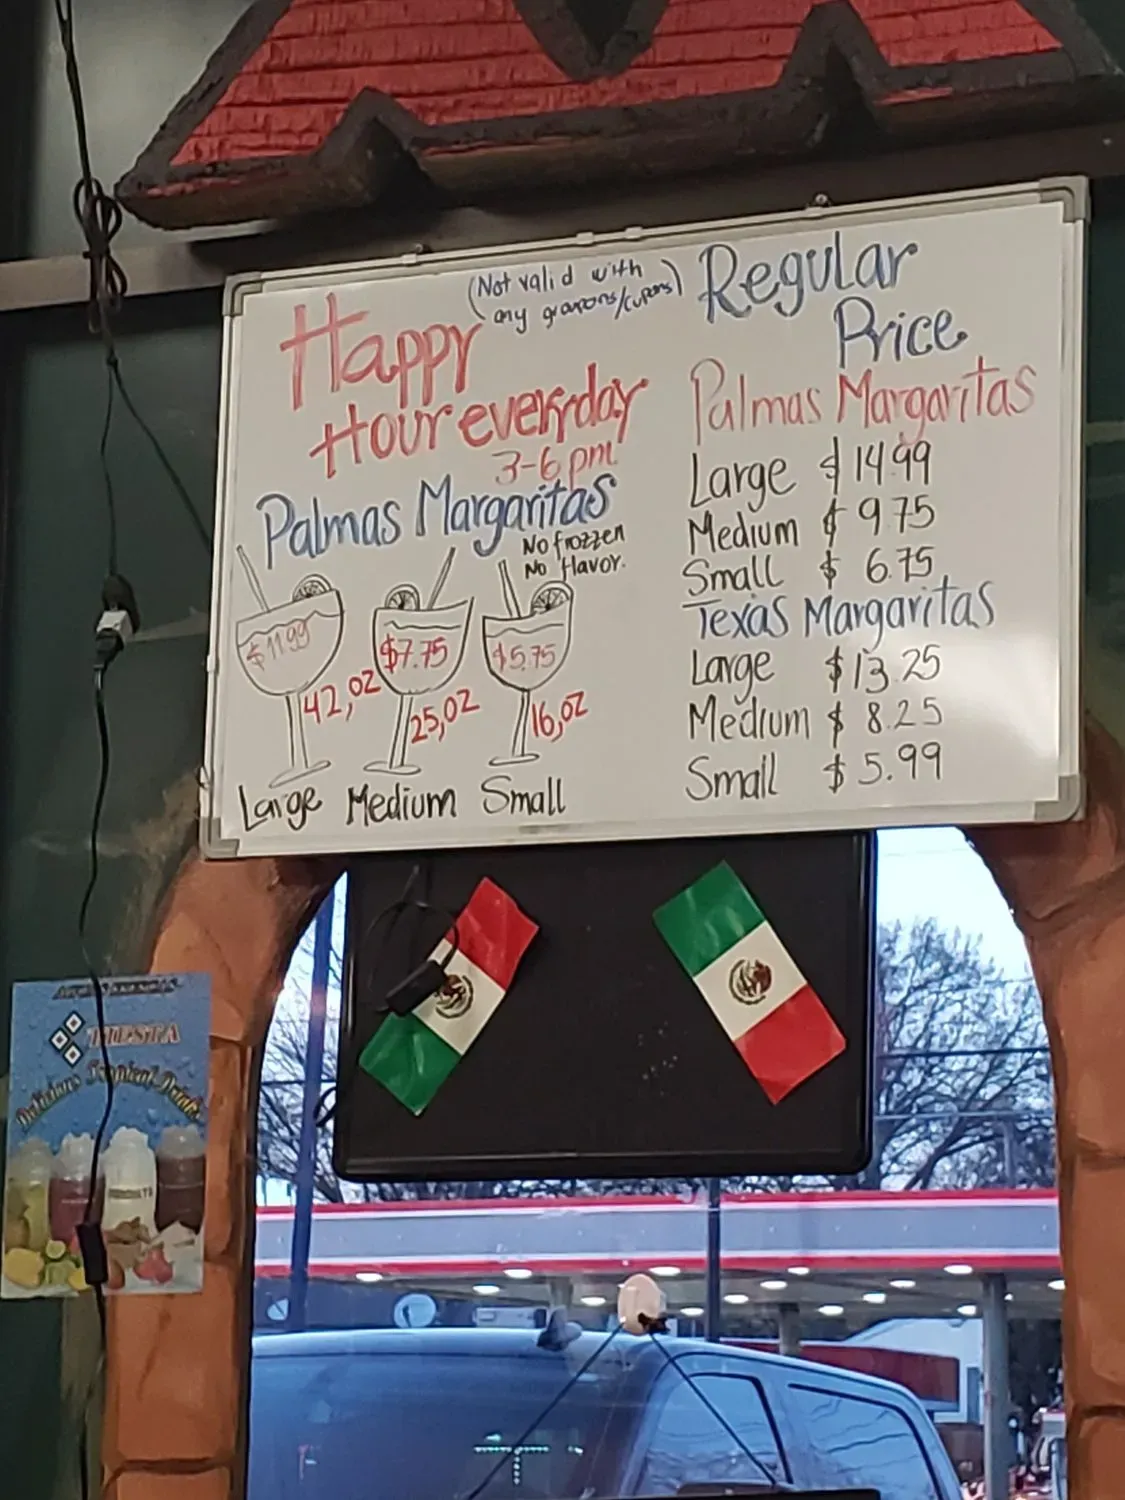 (Not valid with
any groupons/cupons)
Happy
Hour everyday
3-6 pm
Palmas Margaritas
No frozzen
No flavor.
$11.99
$7.75
$5.75
42,oz
25,oz
16,oz
Large Medium Small
Regular
Price
Palmas Margaritas
Large $14.99
Medium $9.75
Small $6.75
Texas Margaritas
Large $13.25
Medium $8.25
Small $5.99
AGUAS FRESCAS
FIESTA
Delicious Tropical Drinks